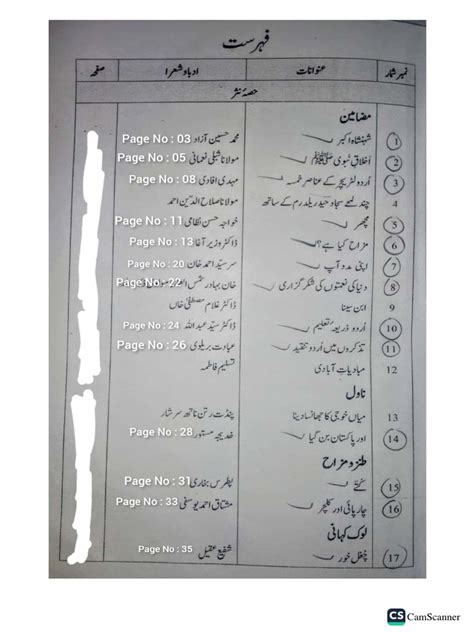 فہرست
نمبر شمار عنوانات ادبا و شعرا صفحہ
حصۂ نثر
مضامین
1 شہنشاہ اکبر محمد حسین آزاد Page No : 03
2 اخلاقِ نبوی ﷺ مولانا شبلی نعمانی Page No : 05
3 اُردو لٹریچر کے عناصرِ خمسہ مہدی افادی Page No : 08
4 چند لمحے سجاد حیدر یلدرم کے ساتھ مولانا صلاح الدین احمد
5 مچھر خواجہ حسن نظامی Page No : 11
6 مزاح کیا ہے؟ ڈاکٹر وزیر آغا Page No : 13
7 اپنی مدد آپ سر سید احمد خان Page No : 20
8 دنیا کی نعمتوں کی شکر گزاری خان بہادر شمس Page No : 22
9 ابن سینا ڈاکٹر غلام مصطفیٰ خاں
10 اُردو ذریعۂ تعلیم ڈاکٹر سید عبداللہ Page No : 24
11 تذکروں میں اُردو تنقید عبادت بریلوی Page No : 26
12 مبادیاتِ آبادی تسلیم فاطمہ
ناول
13 میاں خوجی کا جھانسا دینا پنڈت رتن ناتھ سرشار
14 اور پاکستان بن گیا خدیجہ مستور Page No : 28
طنز و مزاح
15 کتے پطرس بخاری Page No : 31
16 چارپائی اور کلچر مشتاق احمد یوسفی Page No : 33
لوک کہانی
17 چغل خور شفیع عقیل Page No : 35
CS CamScanner